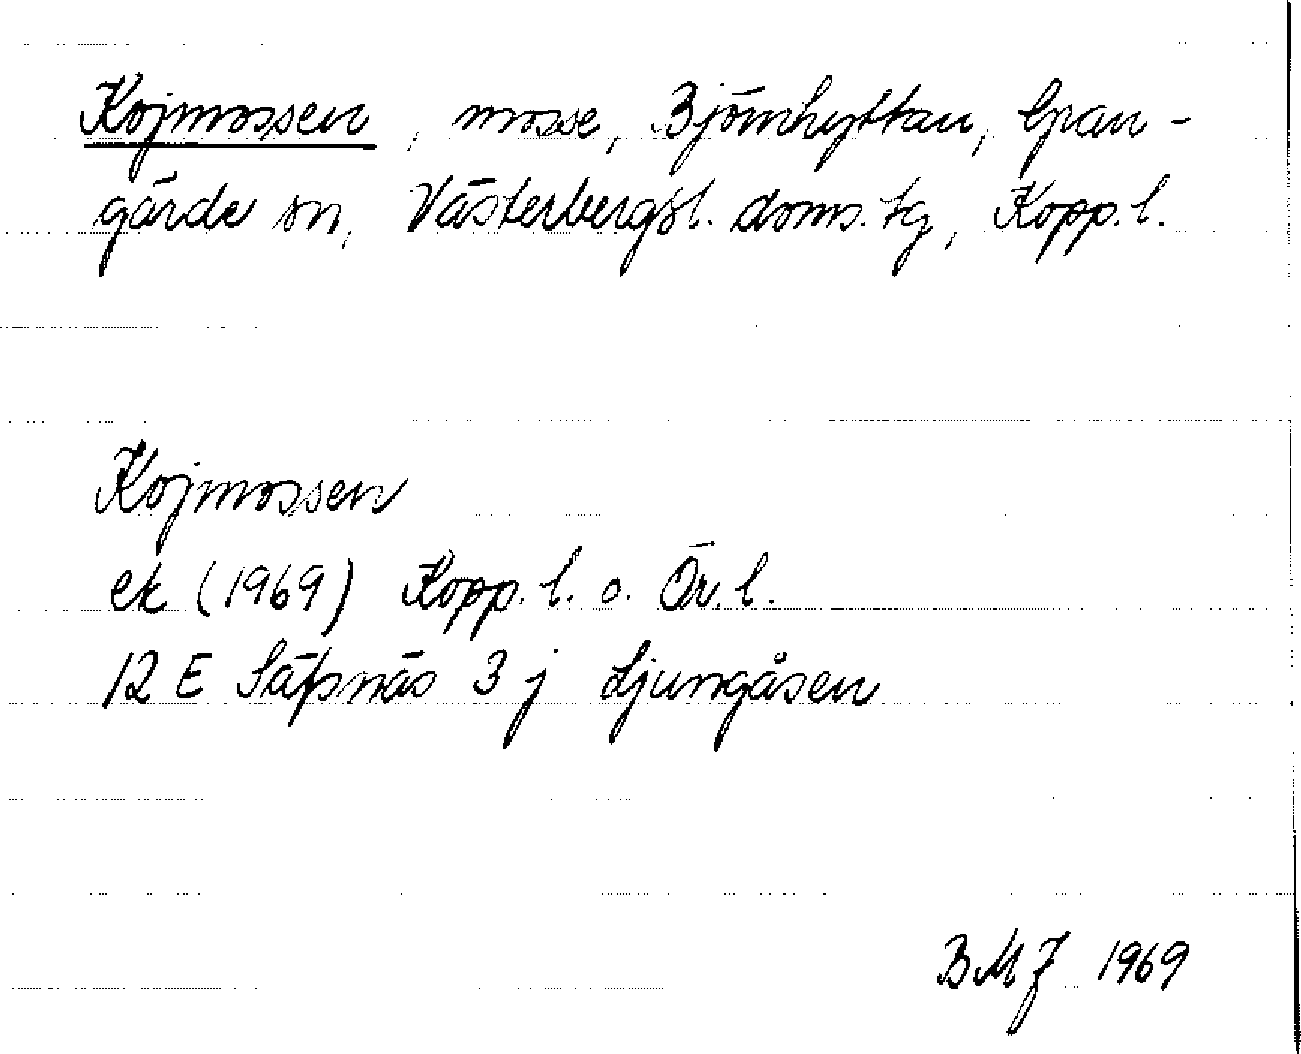 Kojmossen, mosse, Björnhyttan, Gran-
gärde sn, Västerbergsl. doms. tg, Kopp. l.
Kojmossen
ek (1969) Kopp. l. o. Ör. l.
12 E Säfsnäs 3 j Ljungåsen
BMJ 1969